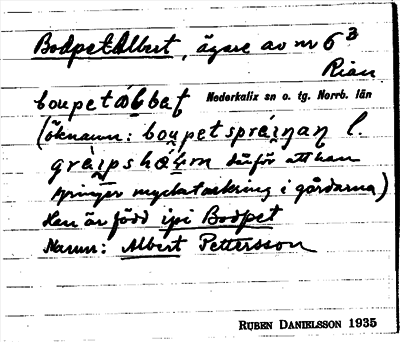 Bodpet-Albert, ägare av nr 6³
Rian
boupetàbbaţ Nederkalix sn o. tg. Norrb. län
(öknamn: boupetspráiŋaŋ l.
gràipshàḷm därför att han
springer mycket omkring i gårdarna)
Han är född ipi Bodpet
Namn: Albert Pettersson
RUBEN DANIELSSON 1935